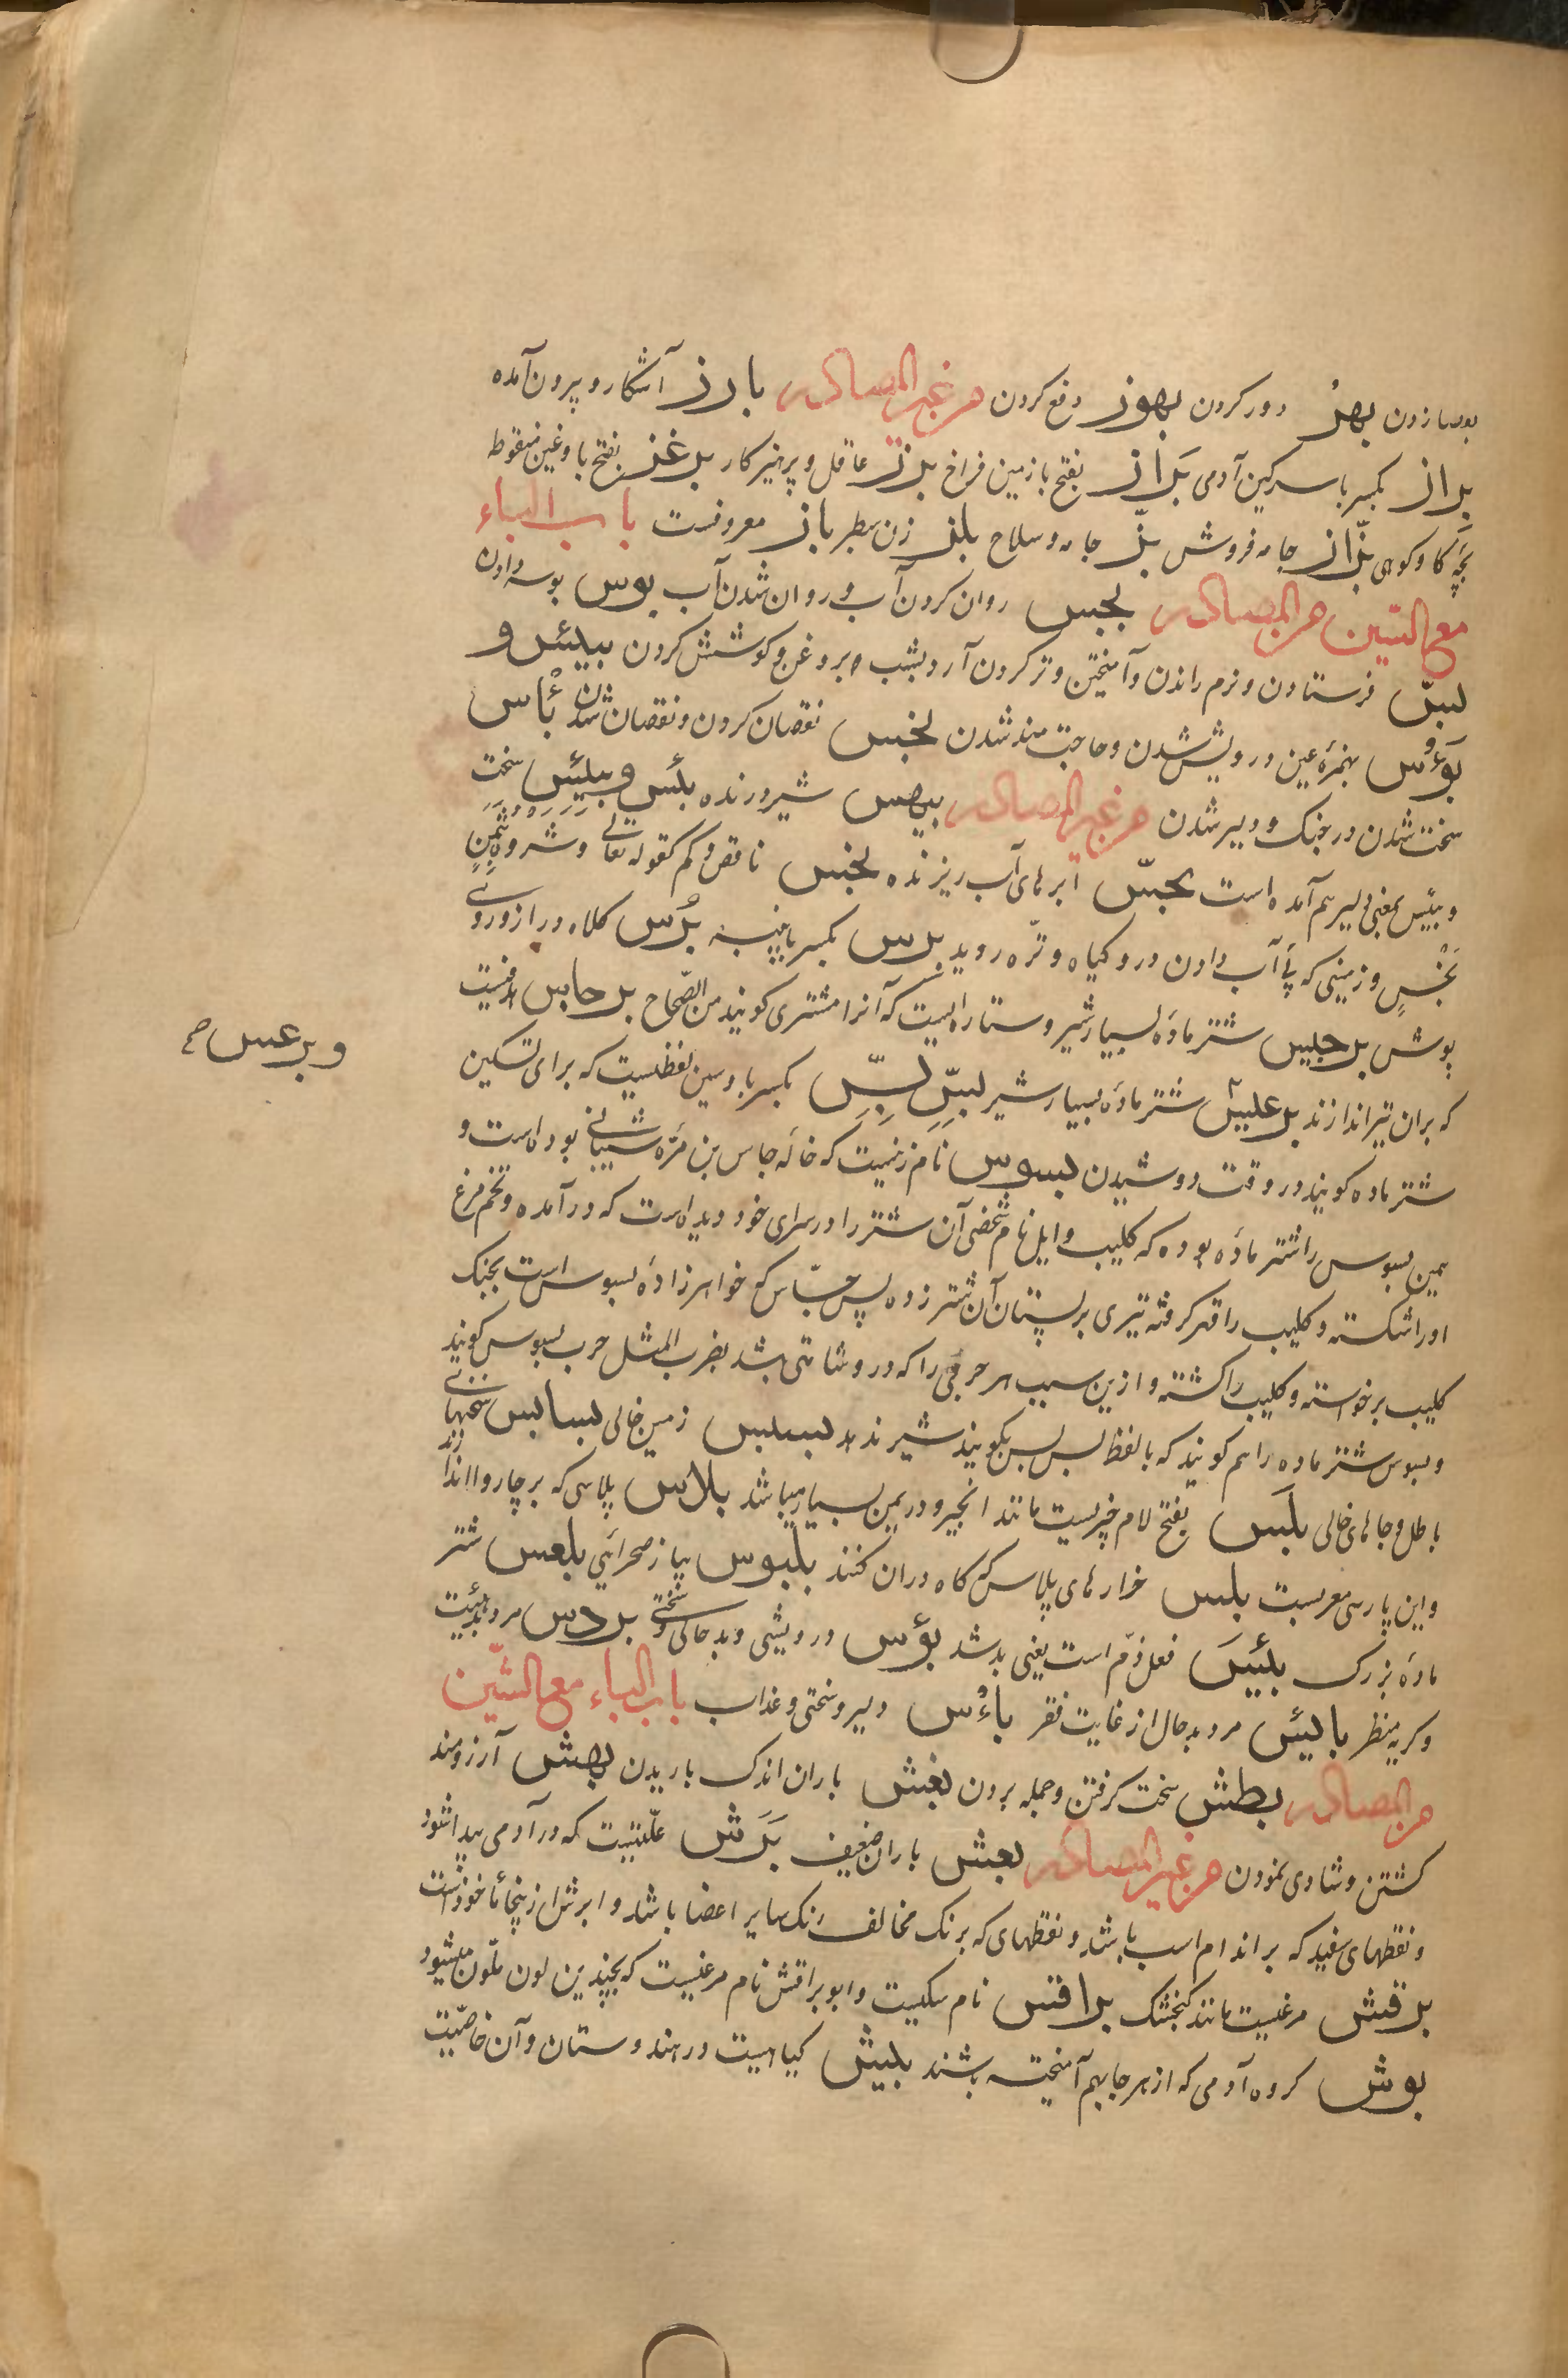 بهز دور کردن بهوز دفع کردن من غیر المصادر بارز آشکار و بیرون آمده
براز بکسر با سرکین آدمی بَراز بفتح با زمین فراخ برز عاقل و پرهیزکار برغز بفتح با و غین منقوط
بچّهٔ کاو کوهی بزّاز جامه فروش بزّ جامه و سلاح بلز زن سطبر باز معروفست باب الباء
مع السّین من المصادر بجس روان کردن آب و روان شدن آب بوس بوسه دادن
بسّ فرستادن و نرم راندن و آمیختن و تر کردن آرد بشب و بروغن و کوشش کردن بیئس و
بؤس بهمزهٔ عین درویش شدن و حاجت مند شدن بخس نقصان کردن و نقصان شدن بأس
سخت شدن در جنک و دلیر شدن من غیر المصادر بیهس شیر درنده بئس و بیئس سخت
و بئیس بمعنی دلیر هم آمده است بجسّ ابرهای آب ریزنده بخس ناقص و کم کقوله تعالی وشروه بثمن
بَخْسٍ و زمینی که بی آب دادن درو کیاه و ترّه روید برس بکسر با پنبه بُرس کلاه دراز و روی
پوش برجیس شتر مادهٔ بسیار شیر و ستاره ایست که آنرا مشتری کویند من الصّحاح برجاس هدفیست
که بران تیر اندازند برعیس شتر مادهٔ بسیار شیر بسّ بسّ بکسر با و سین لفظیست که برای تسکین
و برعس صح
شتر ماده کویند در وقت دوشیدن بسوس نام زنیست که خالهٔ جاس بن مرّه شیبانی بوده است و
همین بسوس را شتر ماده بوده که کلیب وایل نام شخصی آن شتر را در سرای خود دیده است که درآمده و تخم مرغ
اورا شکسته و کلیب را قهر کرفته تیری بر پستان آن شتر زده پس جسّاس که خواهرزادهٔ بسوس است بجنک
کلیب برخواسته و کلیب را کشته و ازین سبب هر حربی را که درو شامتی باشد بضرب المثل حرب بسوس کویند
و بسوس شتر ماده را هم کویند که با لفظ بس بس بکویند شیر ندهد بسبس زمین خالی بسابس سخنهای
باطل و جاهای خالی بلَس بفتح لام چیزیست مانند انجیر و در یمن بسیار میباشد بلاس پلاسی که بر چاروا اندازند
و این پارسی معربست بلس غرارهای پلاس که کاه دران کنند بلبوس پیاز صحرائی بلعس شتر
مادهٔ بزرک بئیسَ فعل ذمّ است یعنی بد شد بؤس درویشی و بدحالی و سختی بردس مرد بدهیئت
و کریه منظر بائیس مرد بدحال از غایت فقر باءُس دلیر و سختی و عذاب باب الباء مع الشّین
من المصادر بطش سخت کرفتن و حمله بردن بغش باران اندک باریدن بهش آرزومند
کشتن و شادی نمودن من غیر المصادر بعش باران ضعیف بَرَش علّتیست که در آدمی پیدا شود
و نقطهای سفید که بر اندام اسب باشد و نقطهای که برنک مخالف رنک سایر اعضا باشد و ابرش از ینجا ماخوذ است
برقش مرغیست مانند کنجشک براقش نام سکیست و ابو براقش نام مرغیست که بچندین لون ملّون میشود
بوش کروه آدمی که از هر جا بهم آمیخته باشند بیش کیاهیست در هندوستان و آن خاصّیت